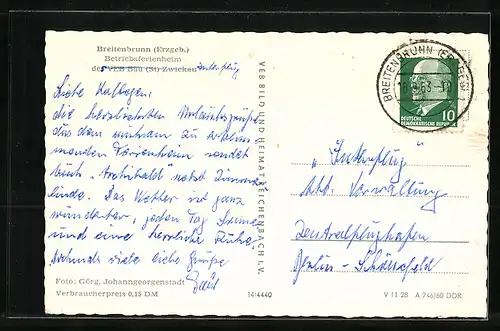 Breitenbrunn (Erzgeb.)
Betriebsferienheim
des VEB Bau (St) Zwickau Interflug
Liebe Kollegen!
die herzlichsten Urlaubsgrüße
aus dem
Ferienheim sendet
Euch "Archibald" nebst
Das Wetter ist ganz
wunderbar, jeden Tag Sonne
und eine herrliche
Nochmals viele liebe Grüße
Foto: Görg, Johanngeorgenstadt
Verbraucherpreis 0,15 DM
14/4440
VEB BILD UND HEIMAT REICHENBACH I. V.
BREITENBRUNN (ERZGEB)
DEUTSCHE
DEMOKRATISCHE REPUBLIK
10
"Interflug"
Abt. Verwaltung
Zentralflughafen
Berlin-Schönefeld
V 11 28 A 746/60 DDR